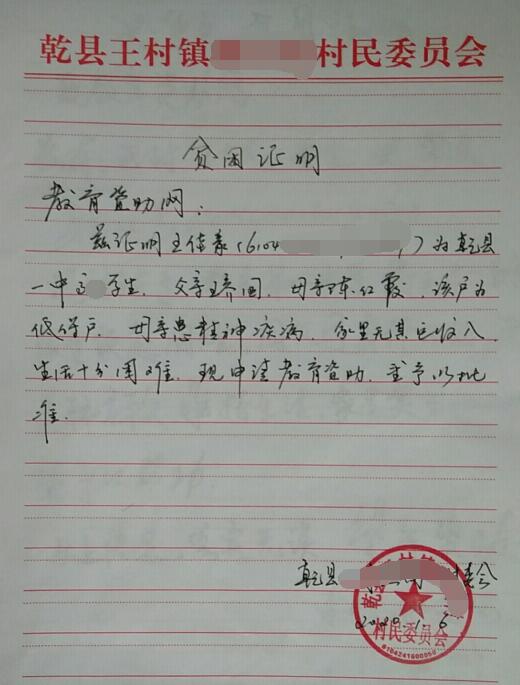 乾县王村镇 村民委员会
贫困证明
教育资助网：
兹证明王佳 (6104 ) 为乾县
一中 学生. 父亲王养团. 母亲陈红霞. 该户为
低保户. 母亲患精神疾病, 家里无其它收入,
生活十分困难. 现申请教育资助. 望予以批
准.
乾县 委会
村民委员会
6104241600050